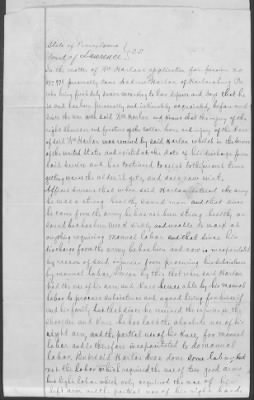 State of Pennsylvania }
County of Lawrence } SS
In the matter of Wm Harlan's application for pension no
personally came Andrew Harlan of Harlansburg Pa
who being first duly sworn according to law deposes and says that he
is and has been personally and intimately acquainted, before and
since the war with said Wm Harlan and knows that the injury of the
right shoulder and fracture of the collar bone and injury of the knee
of said Wm Harlan was received by said Harlan whilst in the service
of the United States and existed at the date of his discharge from
said service and has continued to exist to this present time
getting worse the older it gets, and does now exist,
Affiant knows that when said Harlan entered the army
he was a strong healthy sound man and that since
he came from the army he has never been strong healthy or
sound but has been lame and unable to work at
anything requiring manual labor and that since his
discharge from the army he has been and now is incapacitated
by reason of said injuries from procuring his subsistence
by manual labor, reason by this that when said Harlan
had the use of his arm and knee he was able by his manual
labor to procure subsistence and a good living for himself
and his family but that since he received the injury in the
shoulder and knee he has lost the absolute use of his
right arm and the partial use of his knee, for manual
labor and is therefore incapacitated to do manual
labor, that said Harlan does done some labor but
not the labor which required the use of two good arms
but light labor which only required the use of his
left arm with partial use of his right hand